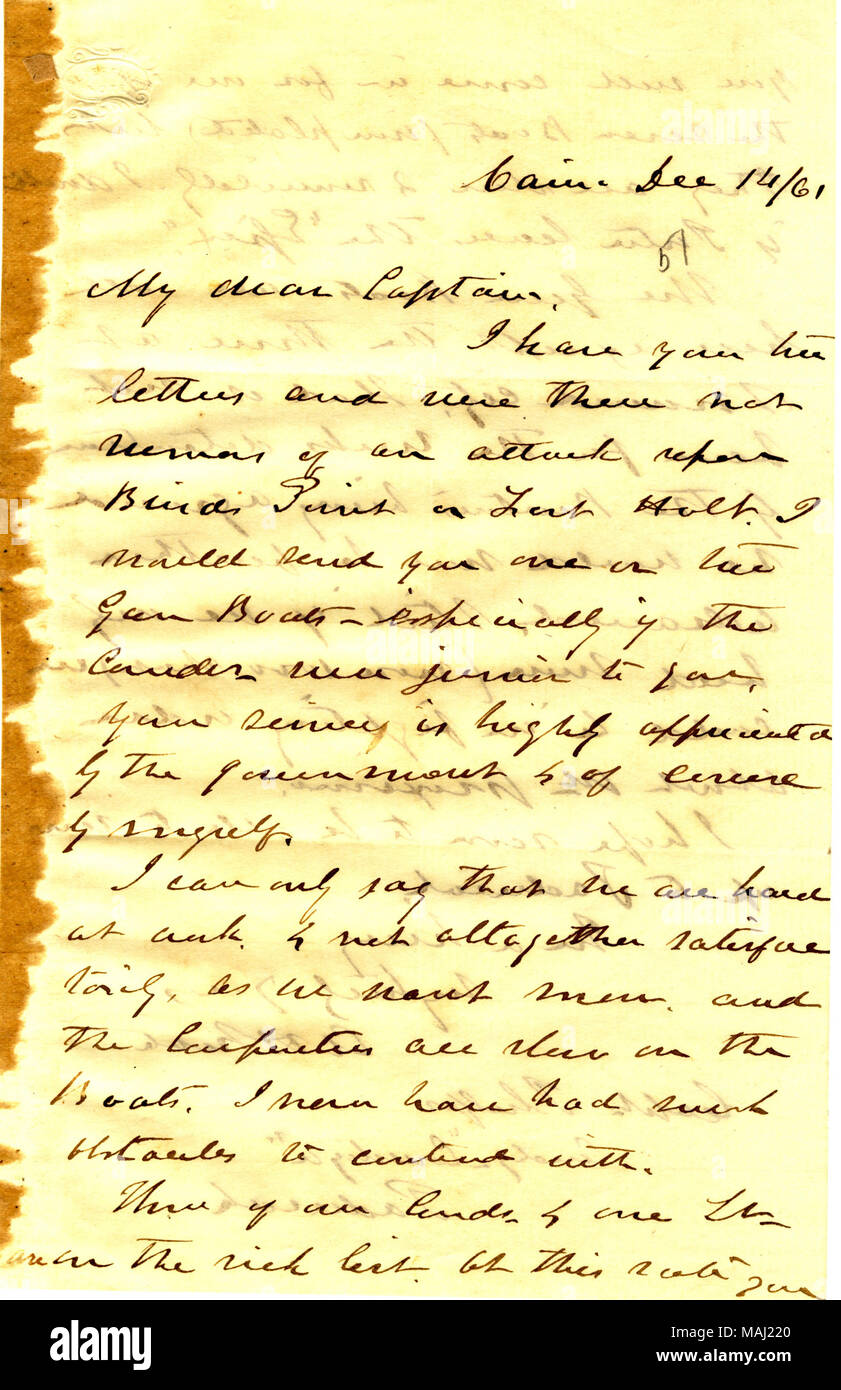 Cairo. Dec 14/61
My dear Captain,
I have your two
letters and were there not
rumors of an attack upon
Birds Point or Fort Holt. I
would send you one or two
Gun Boats - especially if the
Comder were junior to you.
Your services is highly appreciated
by the government & of course
by myself.
I can only say that we are hard
at work & not altogether satisfac
torily, as we want men, and
the Carpenters are slow on the
Boats. I never have had such
obstacles to contend with.
Three of our Comds & one Lt
are on the sick list. At this rate you
alamy
alamy stock photo
MAJ220
www.alamy.com